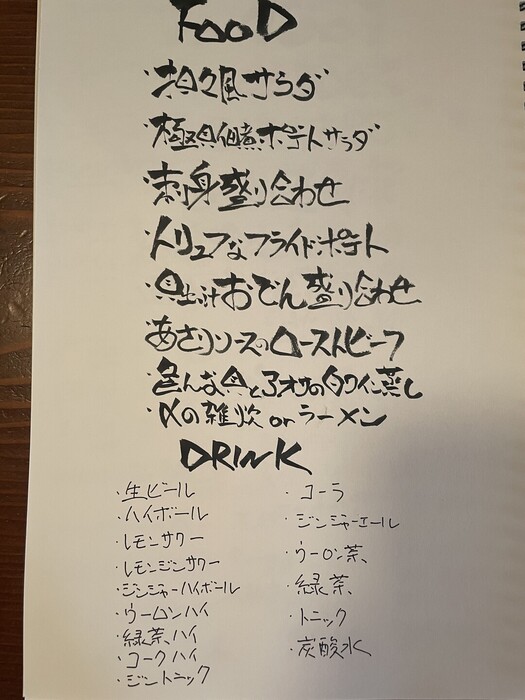 FOOD
・担々風サラダ
・極貝佃煮ポテトサラダ
・刺身盛り合わせ
・トリュフなフライドポテト
・貝出汁おでん盛り合わせ
・あさりソースのローストビーフ
・色んな貝とアオサの白ワイン蒸し
・〆の雑炊 or ラーメン
DRINK
・生ビール
・ハイボール
・レモンサワー
・レモンジンサワー
・ジンジャーハイボール
・ウーロンハイ
・緑茶ハイ
・コークハイ
・ジントニック
・コーラ
・ジンジャーエール
・ウーロン茶
・緑茶
・トニック
・炭酸水